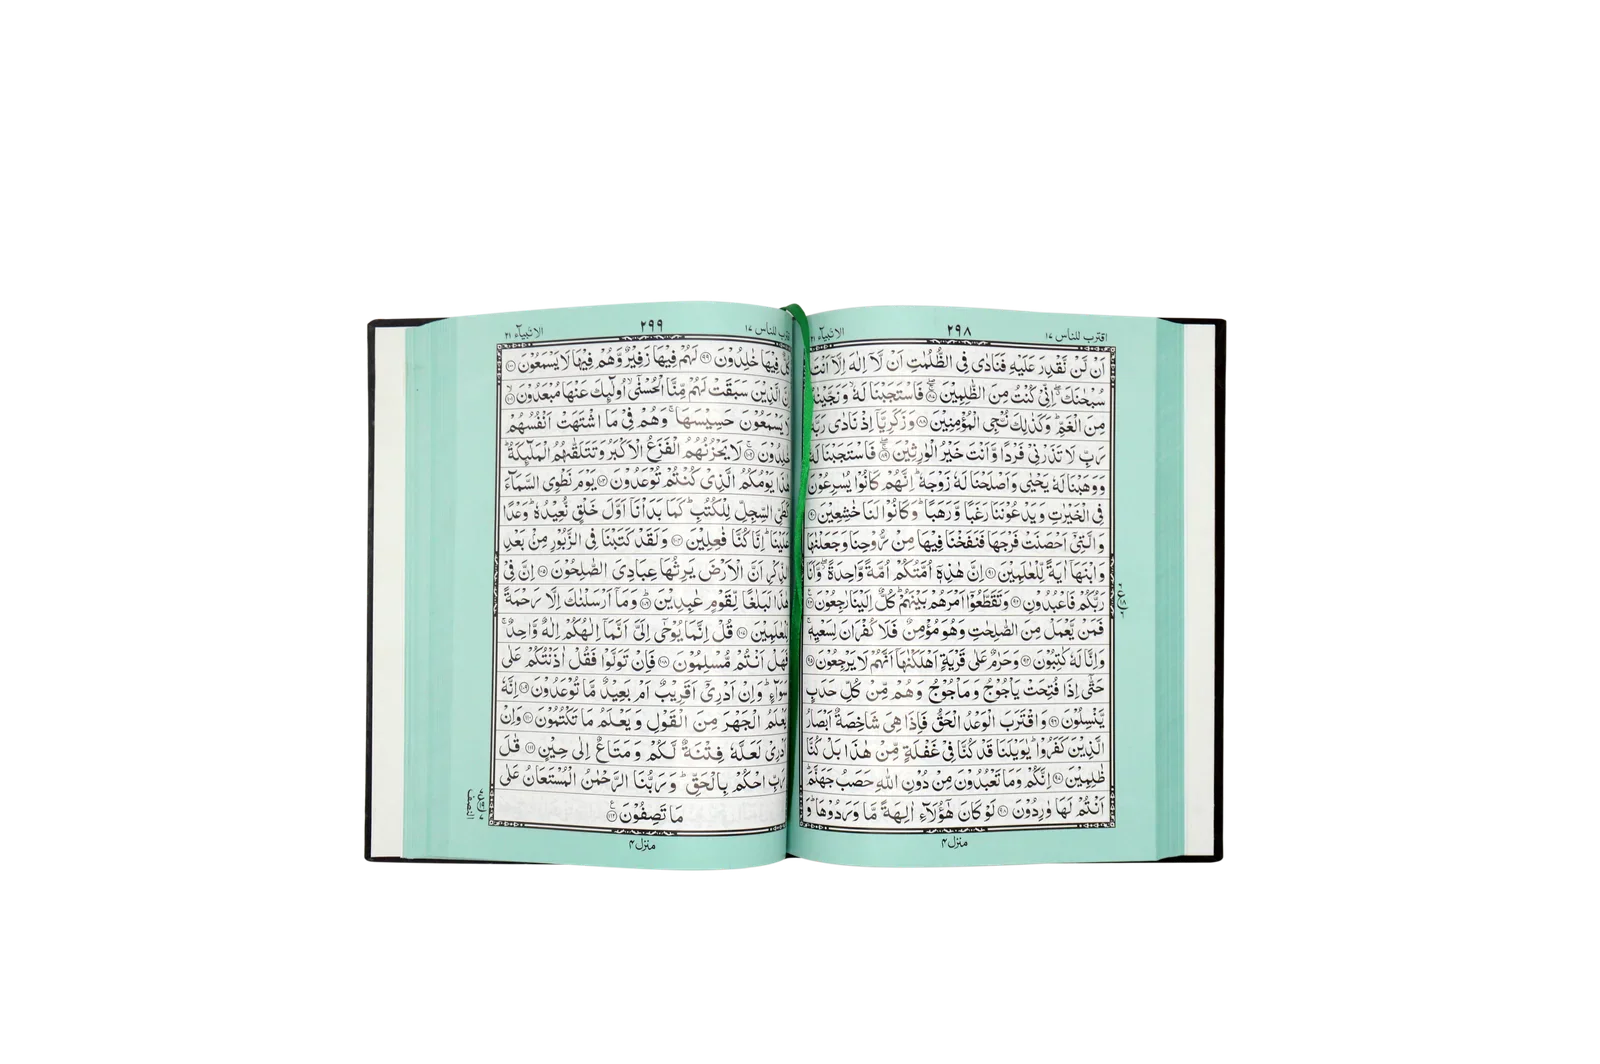 اقترب للناس ١٧
٢٩٨
الانبیآء ٢١
اَنْ لَّنْ نَّقْدِرَ عَلَیْهِ فَنَادٰی فِی الظُّلُمٰتِ اَنْ لَّاۤ اِلٰهَ اِلَّاۤ اَنْتَ
سُبْحٰنَكَ ۖۗ اِنِّیْ كُنْتُ مِنَ الظّٰلِمِیْنَ ۚۖ۝۸۷ فَاسْتَجَبْنَا لَهٗ ۙ وَ نَجَّیْنٰهُ
مِنَ الْغَمِّ ؕ وَ كَذٰلِكَ نُـْۨجِی الْمُؤْمِنِیْنَ ۝۸۸ وَ زَكَرِیَّاۤ اِذْ نَادٰی رَبَّهٗ
رَبِّ لَا تَذَرْنِیْ فَرْدًا وَّ اَنْتَ خَیْرُ الْوٰرِثِیْنَ ۚۖ۝۸۹ فَاسْتَجَبْنَا لَهٗ
وَ وَهَبْنَا لَهٗ یَحْیٰی وَ اَصْلَحْنَا لَهٗ زَوْجَهٗ ؕ اِنَّهُمْ كَانُوْا یُسٰرِعُوْنَ
فِی الْخَیْرٰتِ وَ یَدْعُوْنَنَا رَغَبًا وَّ رَهَبًا ؕ وَ كَانُوْا لَنَا خٰشِعِیْنَ ۝۹۰
وَ الَّتِیْۤ اَحْصَنَتْ فَرْجَهَا فَنَفَخْنَا فِیْهَا مِنْ رُّوْحِنَا وَ جَعَلْنٰهَا
وَ ابْنَهَاۤ اٰیَةً لِّلْعٰلَمِیْنَ ۝۹۱ اِنَّ هٰذِهٖۤ اُمَّتُكُمْ اُمَّةً وَّاحِدَةً ۖؗ وَّ اَنَا
رَبُّكُمْ فَاعْبُدُوْنِ ۝۹۲ وَ تَقَطَّعُوْۤا اَمْرَهُمْ بَیْنَهُمْ ؕ كُلٌّ اِلَیْنَا رٰجِعُوْنَ ۝۹۳
فَمَنْ یَّعْمَلْ مِنَ الصّٰلِحٰتِ وَ هُوَ مُؤْمِنٌ فَلَا كُفْرَانَ لِسَعْیِهٖ ۚ
وَ اِنَّا لَهٗ كٰتِبُوْنَ ۝۹۴ وَ حَرٰمٌ عَلٰی قَرْیَةٍ اَهْلَكْنٰهَاۤ اَنَّهُمْ لَا یَرْجِعُوْنَ ۝۹۵
حَتّٰۤی اِذَا فُتِحَتْ یَاْجُوْجُ وَ مَاْجُوْجُ وَ هُمْ مِّنْ كُلِّ حَدَبٍ
یَّنْسِلُوْنَ ۝۹۶ وَ اقْتَرَبَ الْوَعْدُ الْحَقُّ فَاِذَا هِیَ شَاخِصَةٌ اَبْصَارُ
الَّذِیْنَ كَفَرُوْا ؕ یٰوَیْلَنَا قَدْ كُنَّا فِیْ غَفْلَةٍ مِّنْ هٰذَا بَلْ كُنَّا
ظٰلِمِیْنَ ۝۹۷ اِنَّكُمْ وَ مَا تَعْبُدُوْنَ مِنْ دُوْنِ اللّٰهِ حَصَبُ جَهَنَّمَ ؕ
اَنْتُمْ لَهَا وٰرِدُوْنَ ۝۹۸ لَوْ كَانَ هٰۤؤُلَآءِ اٰلِهَةً مَّا وَرَدُوْهَا ؕ وَ
منزل ۴
اقترب للناس ١٧
٢٩٩
الانبیآء ٢١
كُلٌّ فِیْهَا خٰلِدُوْنَ ۝۹۹ لَهُمْ فِیْهَا زَفِیْرٌ وَّ هُمْ فِیْهَا لَا یَسْمَعُوْنَ ۝۱۰۰
اِنَّ الَّذِیْنَ سَبَقَتْ لَهُمْ مِّنَّا الْحُسْنٰۤی ۙ اُولٰٓىِٕكَ عَنْهَا مُبْعَدُوْنَ ۙ۝۱۰۱
لَا یَسْمَعُوْنَ حَسِیْسَهَا ۚ وَ هُمْ فِیْ مَا اشْتَهَتْ اَنْفُسُهُمْ
خٰلِدُوْنَ ۚ۝۱۰۲ لَا یَحْزُنُهُمُ الْفَزَعُ الْاَكْبَرُ وَ تَتَلَقّٰىهُمُ الْمَلٰٓىِٕكَةُ ؕ
هٰذَا یَوْمُكُمُ الَّذِیْ كُنْتُمْ تُوْعَدُوْنَ ۝۱۰۳ یَوْمَ نَطْوِی السَّمَآءَ
كَطَیِّ السِّجِلِّ لِلْكُتُبِ ؕ كَمَا بَدَاْنَاۤ اَوَّلَ خَلْقٍ نُّعِیْدُهٗ ؕ وَعْدًا
عَلَیْنَا ؕ اِنَّا كُنَّا فٰعِلِیْنَ ۝۱۰۴ وَ لَقَدْ كَتَبْنَا فِی الزَّبُوْرِ مِنْۢ بَعْدِ
الذِّكْرِ اَنَّ الْاَرْضَ یَرِثُهَا عِبَادِیَ الصّٰلِحُوْنَ ۝۱۰۵ اِنَّ فِیْ
هٰذَا لَبَلٰغًا لِّقَوْمٍ عٰبِدِیْنَ ؕ۝۱۰۶ وَ مَاۤ اَرْسَلْنٰكَ اِلَّا رَحْمَةً
لِّلْعٰلَمِیْنَ ۝۱۰۷ قُلْ اِنَّمَا یُوْحٰۤی اِلَیَّ اَنَّمَاۤ اِلٰهُكُمْ اِلٰهٌ وَّاحِدٌ ۚ
فَهَلْ اَنْتُمْ مُّسْلِمُوْنَ ۝۱۰۸ فَاِنْ تَوَلَّوْا فَقُلْ اٰذَنْتُكُمْ عَلٰی
سَوَآءٍ ؕ وَ اِنْ اَدْرِیْۤ اَقَرِیْبٌ اَمْ بَعِیْدٌ مَّا تُوْعَدُوْنَ ۝۱۰۹ اِنَّهٗ
یَعْلَمُ الْجَهْرَ مِنَ الْقَوْلِ وَ یَعْلَمُ مَا تَكْتُمُوْنَ ۝۱۱۰ وَ اِنْ
اَدْرِیْ لَعَلَّهٗ فِتْنَةٌ لَّكُمْ وَ مَتَاعٌ اِلٰی حِیْنٍ ۝۱۱۱ قٰلَ
رَبِّ احْكُمْ بِالْحَقِّ ؕ وَ رَبُّنَا الرَّحْمٰنُ الْمُسْتَعَانُ عَلٰی
مَا تَصِفُوْنَ ۠۝۱۱۲
النصف
منزل ۴